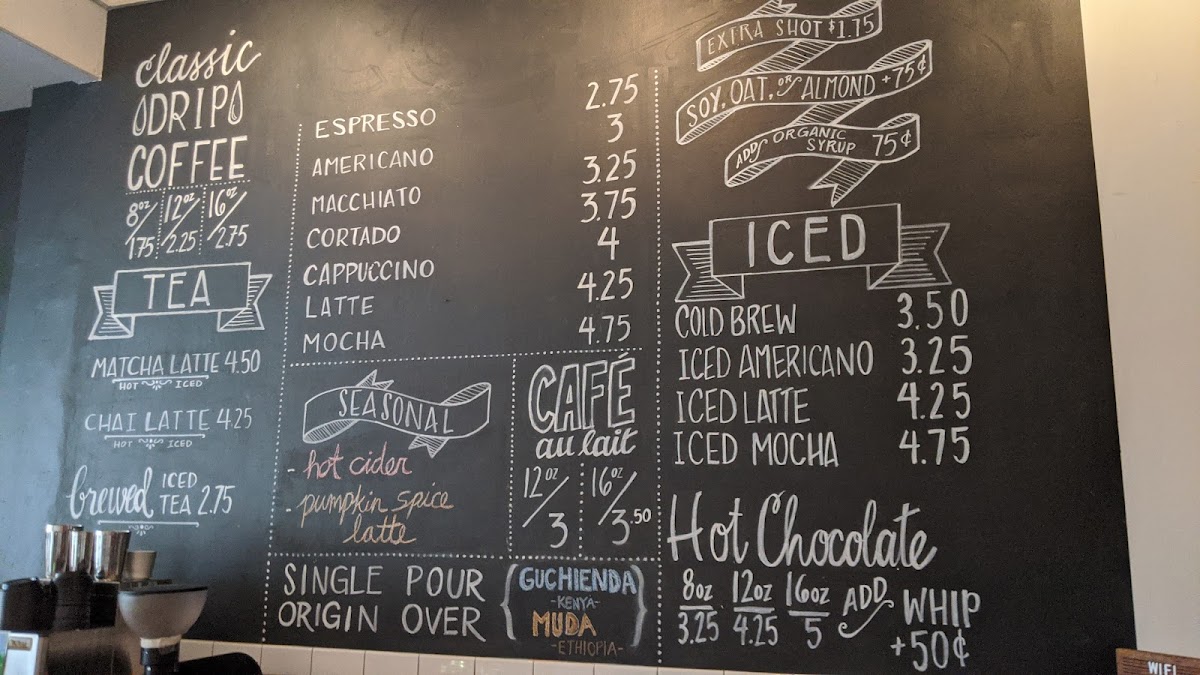 classic
DRIP
COFFEE
8oz/1.75 12oz/2.25 16oz/2.75
TEA
MATCHA LATTE 4.50
HOT ICED
CHAI LATTE 4.25
HOT ICED
brewed ICED TEA 2.75
ESPRESSO 2.75
AMERICANO 3
MACCHIATO 3.25
CORTADO 3.75
CAPPUCCINO 4
LATTE 4.25
MOCHA 4.75
SEASONAL
- hot cider
- pumpkin spice
latte
CAFÉ
au lait
12oz/3 16oz/3.50
SINGLE POUR
ORIGIN OVER
GUCHIENDA
-KENYA-
MUDA
-ETHIOPIA-
EXTRA SHOT $1.75
SOY, OAT, OR ALMOND +75¢
ADD ORGANIC
SYRUP 75¢
ICED
COLD BREW 3.50
ICED AMERICANO 3.25
ICED LATTE 4.25
ICED MOCHA 4.75
Hot Chocolate
8oz 12oz 16oz ADD WHIP
3.25 4.25 5 +50¢
WIFI